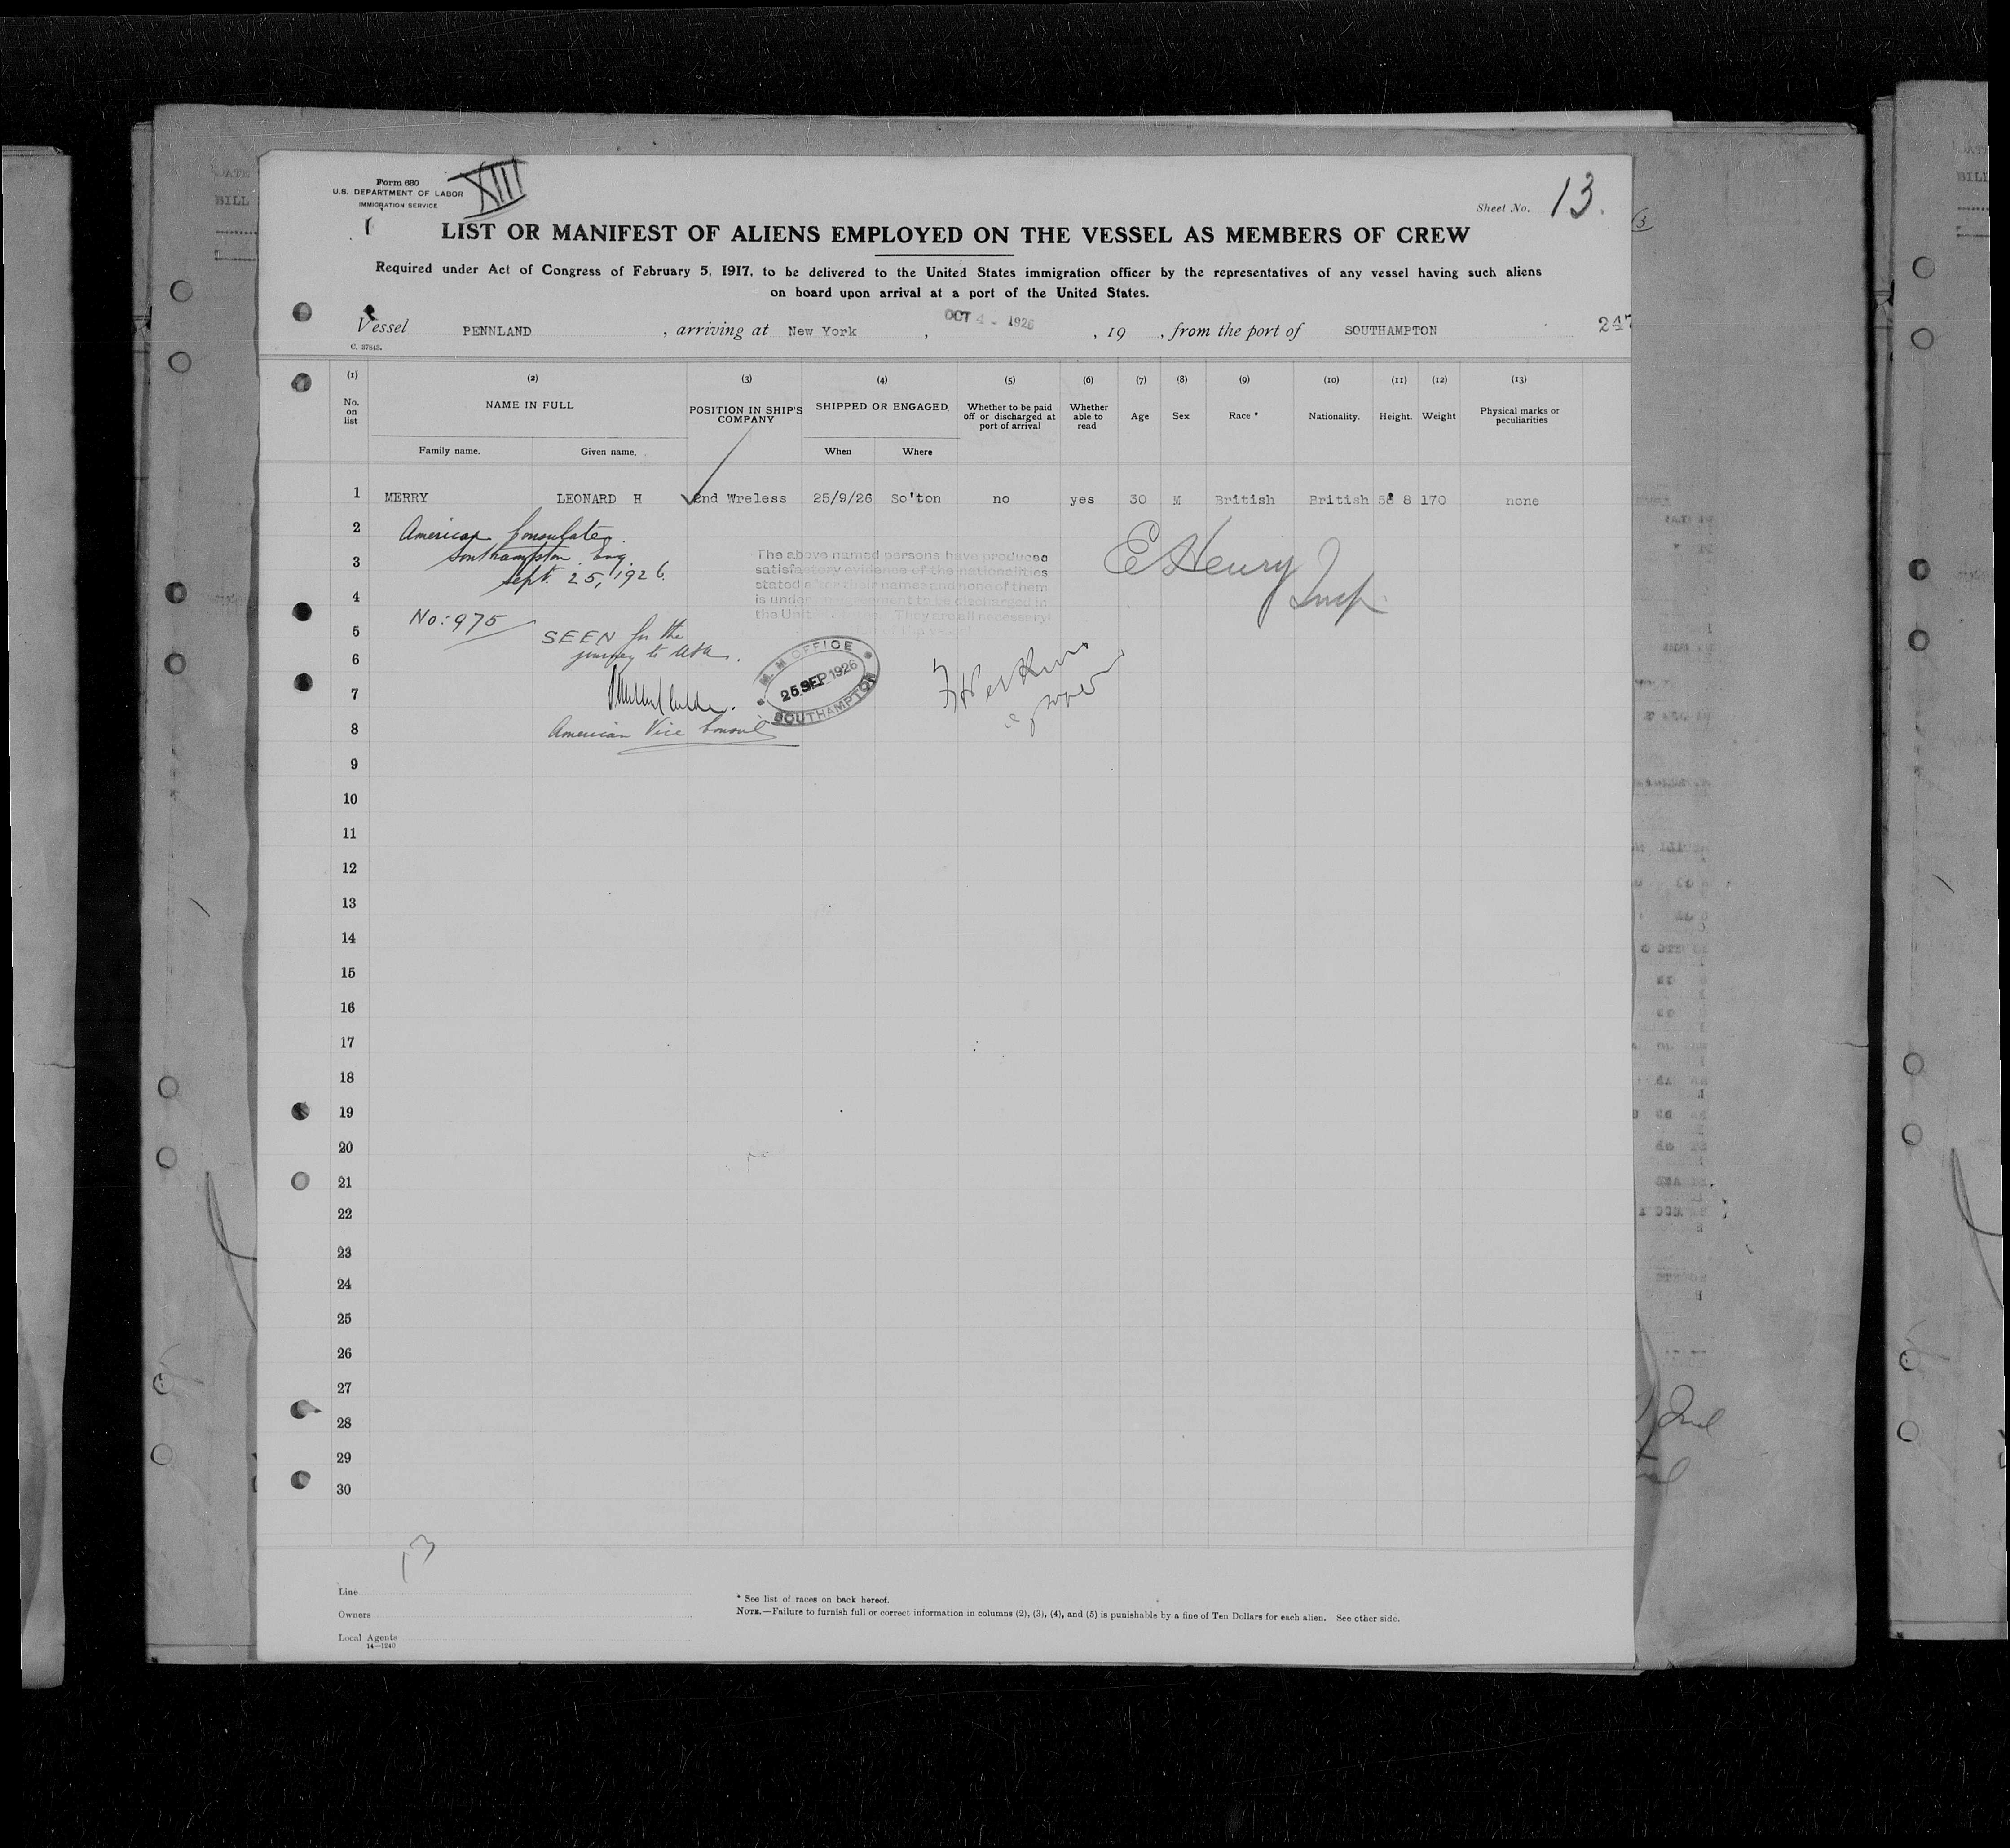 Form 680
U.S. DEPARTMENT OF LABOR
IMMIGRATION SERVICE
XIII
Sheet No. 13.
LIST OR MANIFEST OF ALIENS EMPLOYED ON THE VESSEL AS MEMBERS OF CREW
Required under Act of Congress of February 5, 1917, to be delivered to the United States immigration officer by the representatives of any vessel having such aliens
on board upon arrival at a port of the United States.
Vessel PENNLAND , arriving at New York , OCT 4 - 1926 , 19 , from the port of SOUTHAMPTON 247
C. 37843.
(1) (2) (3) (4) (5) (6) (7) (8) (9) (10) (11) (12) (13)
No. on list NAME IN FULL POSITION IN SHIP'S COMPANY SHIPPED OR ENGAGED. Whether to be paid off or discharged at port of arrival Whether able to read Age Sex Race * Nationality. Height. Weight Physical marks or peculiarities
Family name. Given name. When Where
1 MERRY LEONARD H 2nd Wreless 25/9/26 So'ton no yes 30 M British British 5 8 170 none
2 American Consulate.
Southampton. Eng.
3 Sept. 25, 1926.
The above named persons have produced
satisfactory evidence of the nationalities
stated after their names and none of them
is under an agreement to be discharged in
the Unit They are all necessary
E Henry
Insp
4
No: 975
5 SEEN for the
journey to USA.
6
M. M OFFICE
25 SEP 1926
SOUTHAMPTON
7
8 American Vice Consul
9
10
11
12
13
14
15
16
17
18
19
20
21
22
23
24
25
26
27
28
29
30
13
Line
Owners
Local Agents
14—1240
* See list of races on back hereof.
NOTE.—Failure to furnish full or correct information in columns (2), (3), (4), and (5) is punishable by a fine of Ten Dollars for each alien. See other side.